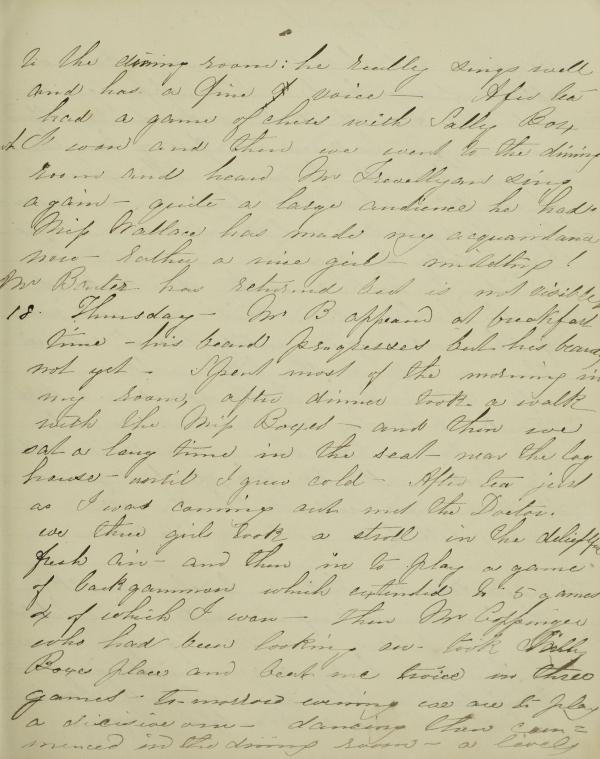 to the dining room: he really sings well
and has a fine voice — After tea
had a game of chess with Sally Box
& I won and then we went to the dining
room and heard Mr Trevellyan sing
again — quite a large audience he had.
Miss Wallace has made my acquaintance
now — rather a nice girl — middling!
Mr Baxter has returned but is not visible
18. Thursday — Mr B appeared at breakfast
time — his beard progresses but his beauty
not yet — Spent most of the morning in
my room, after dinner took a walk
with the Miss Boxes — and then we
sat a long time in the seat — near the log
house — until I grew cold — After tea just
as I was coming out met the Doctor.
we three girls took a stroll in the delightful
fresh air — and then in to play a game
of backgammon which extended to 5 games
4 of which I won — then Mr Coppinger
who had been looking on — took Sally
Boxes place and beat me twice in three
games — to-morrow evening we are to play
a decisive one — dancing then com=
menced in the dining room — a lively